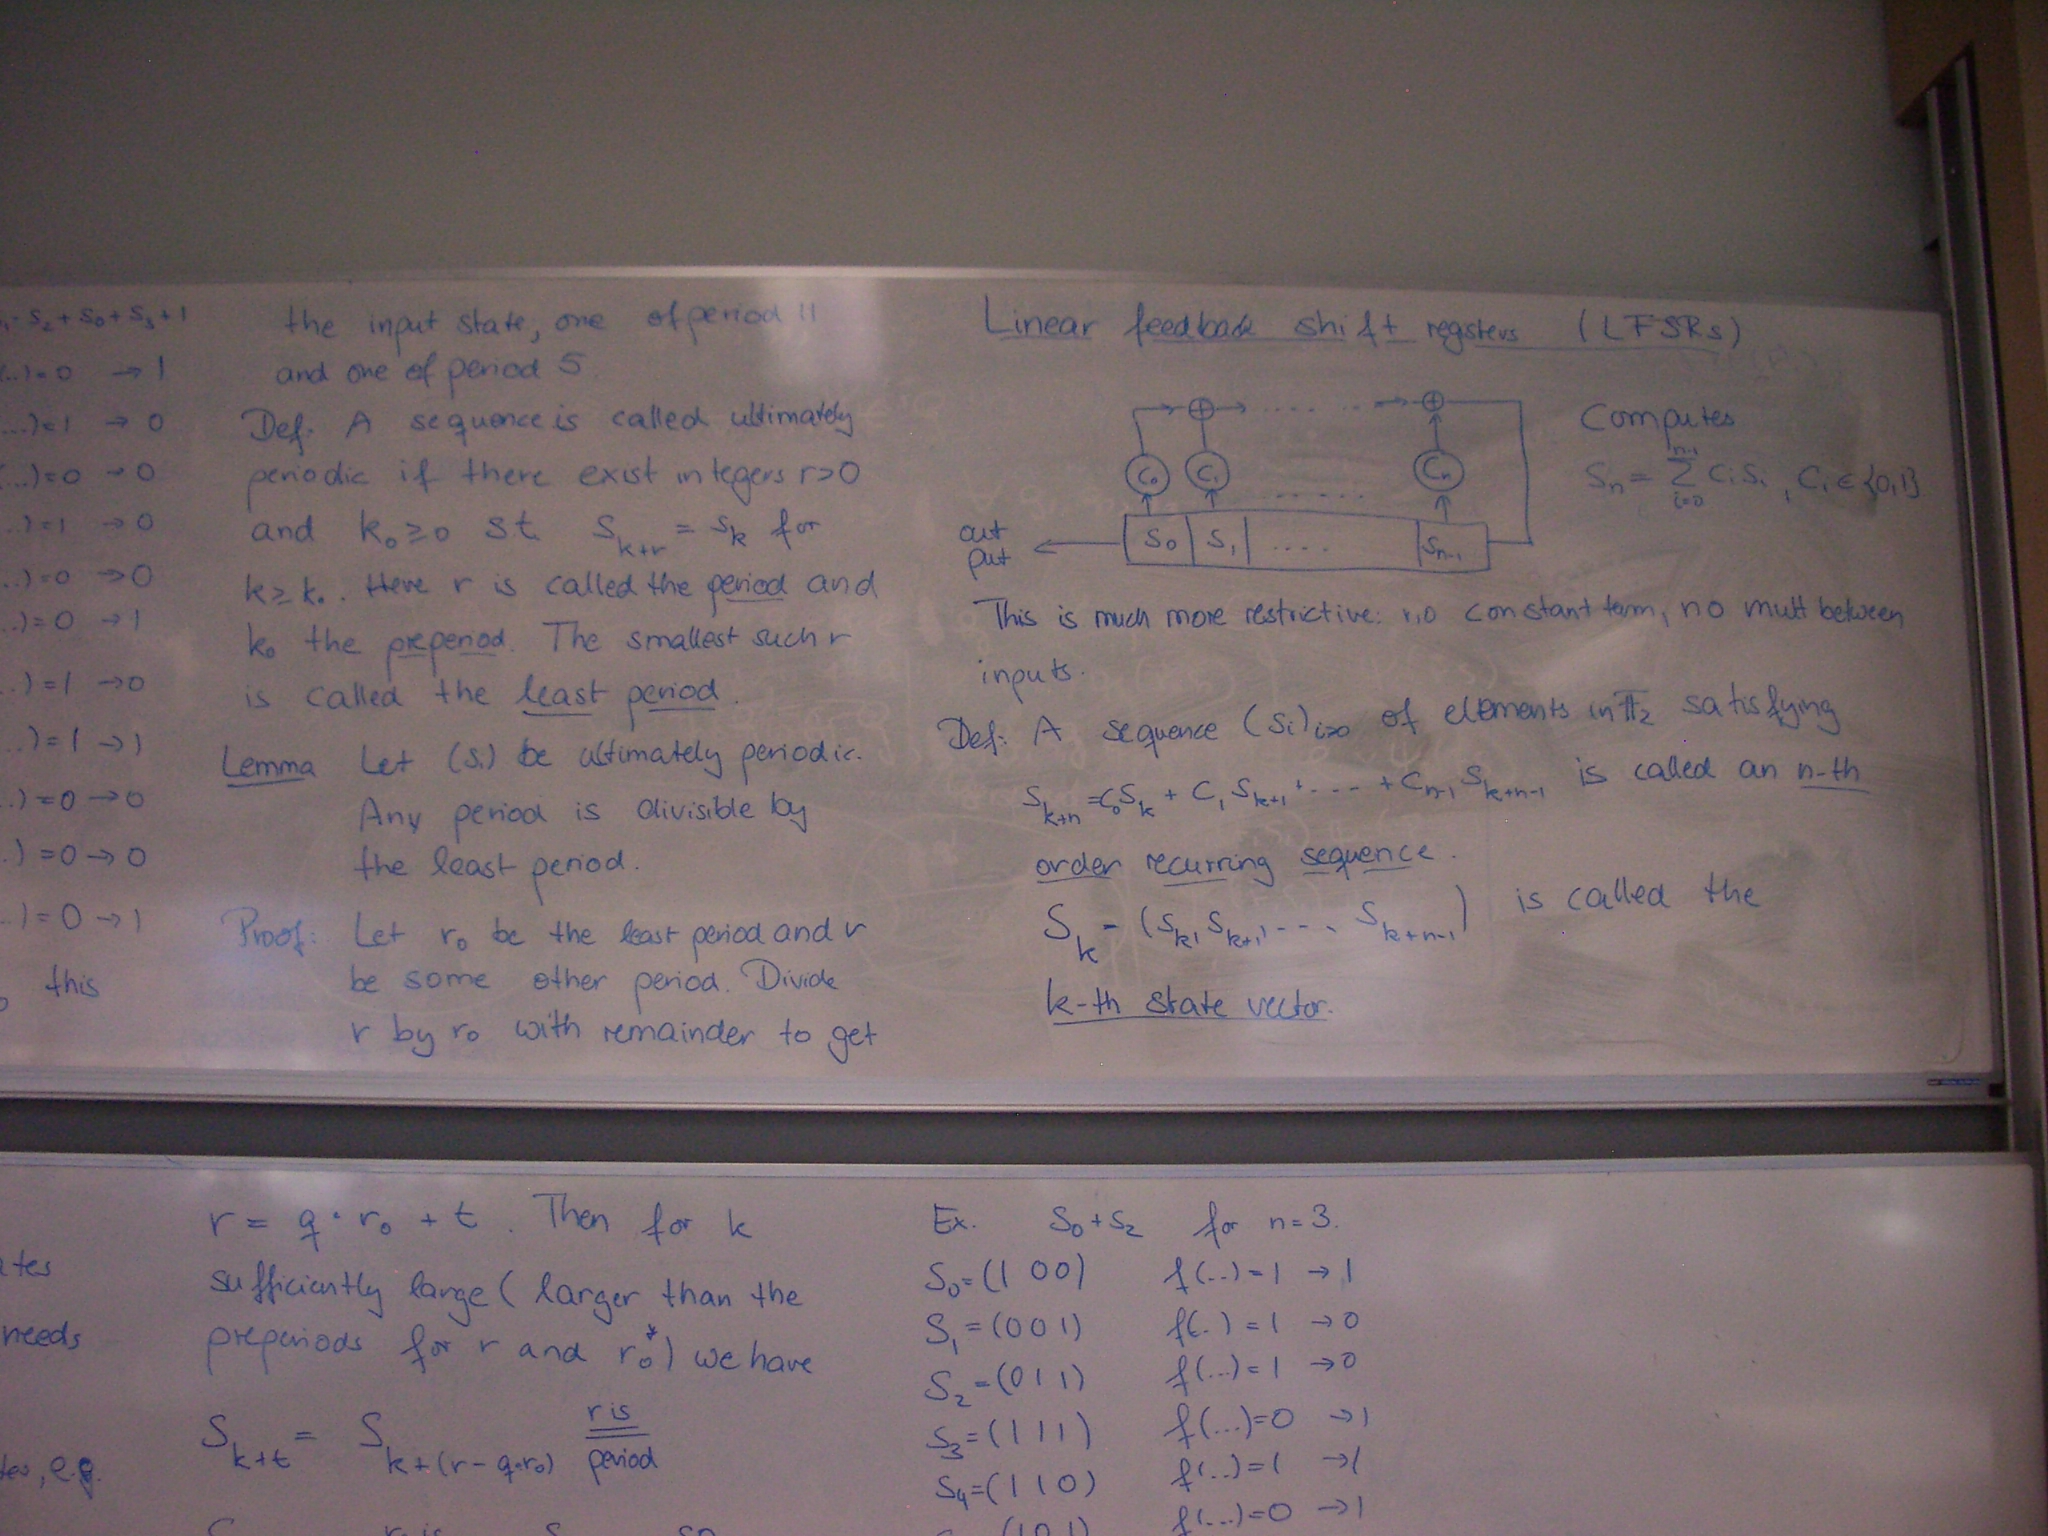 S₂ + S₀ + S₃ + 1
(..) = 0 → 1
(...) = 1 → 0
(...) = 0 → 0
..) = 1 → 0
..) = 0 → 0
..) = 0 → 1
..) = 1 → 0
..) = 1 → 1
.) = 0 → 0
.) = 0 → 0
.) = 0 → 1
this
the input state, one of period 11
and one of period 5.
Def: A sequence is called ultimately
periodic if there exist integers r>0
and k₀ ≥ 0 st. S_{k+r} = S_k for
k ≥ k₀. Here r is called the period and
k₀ the preperiod. The smallest such r
is called the least period.
Lemma Let (Sᵢ) be ultimately periodic.
Any period is divisible by
the least period.
Proof: Let r₀ be the least period and r
be some other period. Divide
r by r₀ with remainder to get
Linear feedback shift registers (LFSRs)
⊕ .... .. ⊕
C₀ C₁ ...... Cₙ
out put S₀ S₁ .... Sₙ₋₁
Computes
Sₙ = Σ_{i=0}^{n-1} Cᵢ Sᵢ , Cᵢ ∈ {0,1}
This is much more restrictive: no constant term, no mult between
inputs.
Def: A sequence (Sᵢ)_{i≥0} of elements in 𝔽₂ satisfying
S_{k+n} = C₀S_k + C₁S_{k+1} + .... + C_{n-1} S_{k+n-1} is called an n-th
order recurring sequence.
S_k = (S_k, S_{k+1}, ...., S_{k+n-1}) is called the
k-th state vector.
needs
e.g.
r = q · r₀ + t . Then for k
sufficiently large (larger than the
preperiods for r and r₀*) we have
S_{k+t} = S_{k+(r-q·r₀)} r is period
Ex. S₀ + S₂ for n = 3.
S₀ = (1 0 0) f(...) = 1 → 1
S₁ = (0 0 1) f(..) = 1 → 0
S₂ = (0 1 1) f(...) = 1 → 0
S₃ = (1 1 1) f(...) = 0 → 1
S₄ = (1 1 0) f(...) = 1 → 1
(1 0 1) f(...) = 0 → 1